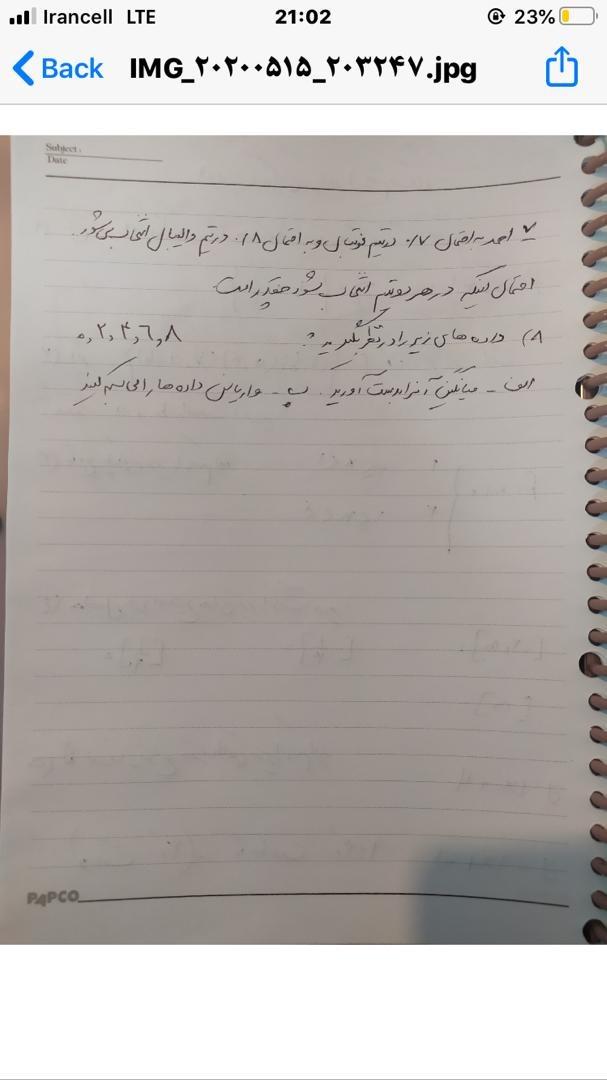 Irancell LTE 21:02 23%
Back IMG_۲۰۲۰۰۵۱۵_۲۰۳۲۴۷.jpg
Subject:
Date
۷ احمد به احتمال ۰/۷ در تیم فوتبال و به احتمال ۰/۸ در تیم والیبال انتخاب می‌شود.
احتمال اینکه در هر دو تیم انتخاب شود چقدر است
۸) داده های زیر را در نظر بگیرید: ۰,۲,۴,۶,۸
الف - میانگین آنرا بدست آورید. ب - واریانس داده ها را محاسبه کنید
PAPCO